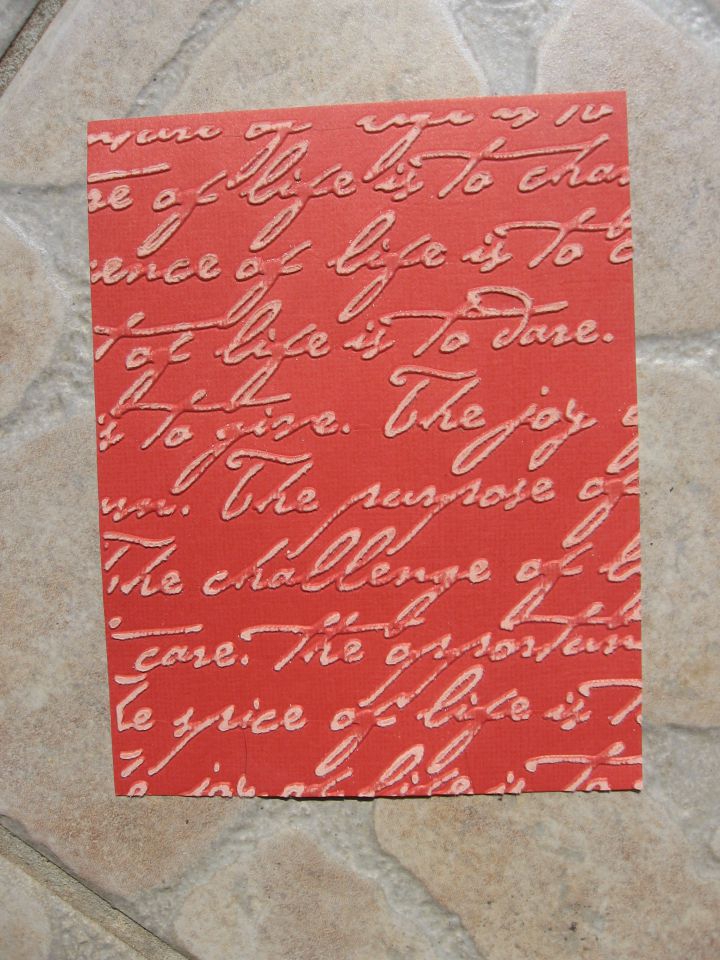 of life is to
of life is to
of life is to
of life is to dare.
to give. The joy
The purpose of
The challenge of
care. the
spice of life is
joy of life is to